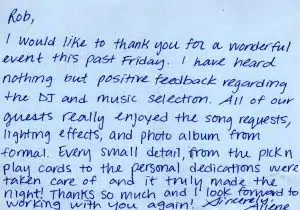 Rob,
I would like to thank you for a wonderful
event this past Friday. I have heard
nothing but positive feedback regarding
the DJ and music selection. All of our
guests really enjoyed the song requests,
lighting effects, and photo album from
formal. Every small detail, from the pick n
play cards to the personal dedications were
taken care of and it truly made the
night! Thanks so much and I look forward to
working with you again! Sincerely,